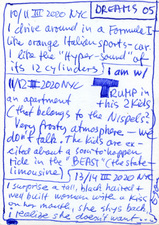 10/11 III 2020 NYC DREAMS 05
I drive around in a Formula I-
like orange Italien sports-car.
I like the "Hyper-sound" of
its 12 cylinders! I am w/
11/12 III 2020 NYC TRUMP in
an apartment this 2 Kids
(that belongs to the Nispels?)
Very frosty atmosphere – we
don't talk. The kids are ex-
cited about a soon-to-happen
ride in the "BEAST" (the state-
limousine) 13/14 III 2020 NYC
I surprise a tall, black haired +
well built woman with a kiss
on her mouth, she stays back
I realise she doesn't want